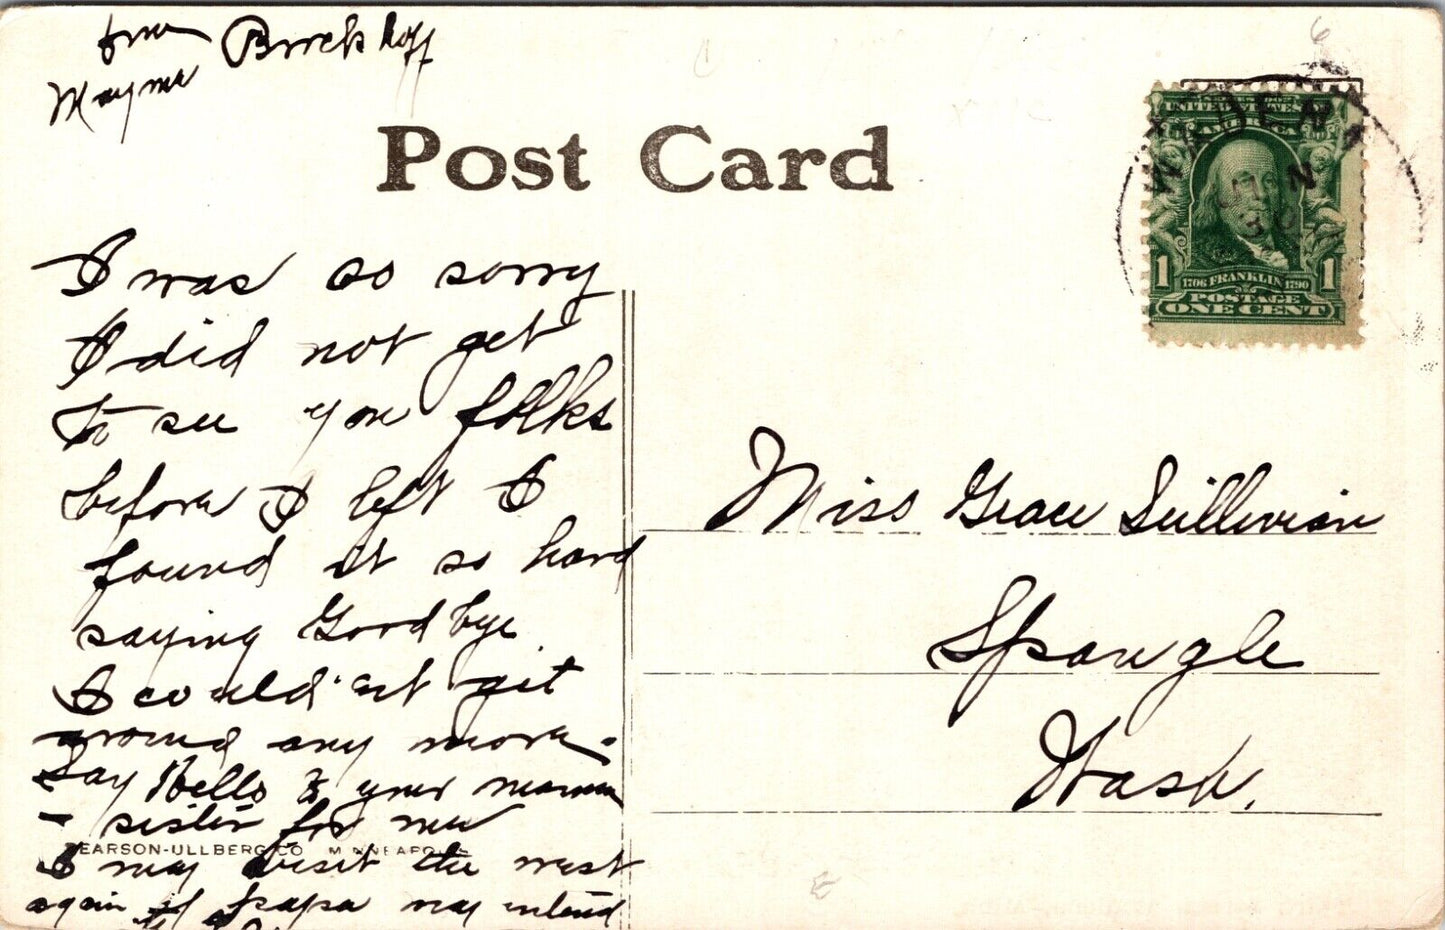 from Birckhoff
Mayme
Post Card
WADENA
JUN
30
UNITED STATES
OF AMERICA
1 1706 FRANKLIN 1790 1
POSTAGE
ONE CENT
I was so sorry
I did not get
to see you folks
before I left I
found it so hard
saying Good bye
I could'nt get
around any more.
Say Hello to your mamma
- sister for me
PEARSON-ULLBERG CO MINNEAPOLIS
I may visit the west
again if papa may intend
Miss Grace Sullivian
Spangle
Wash.